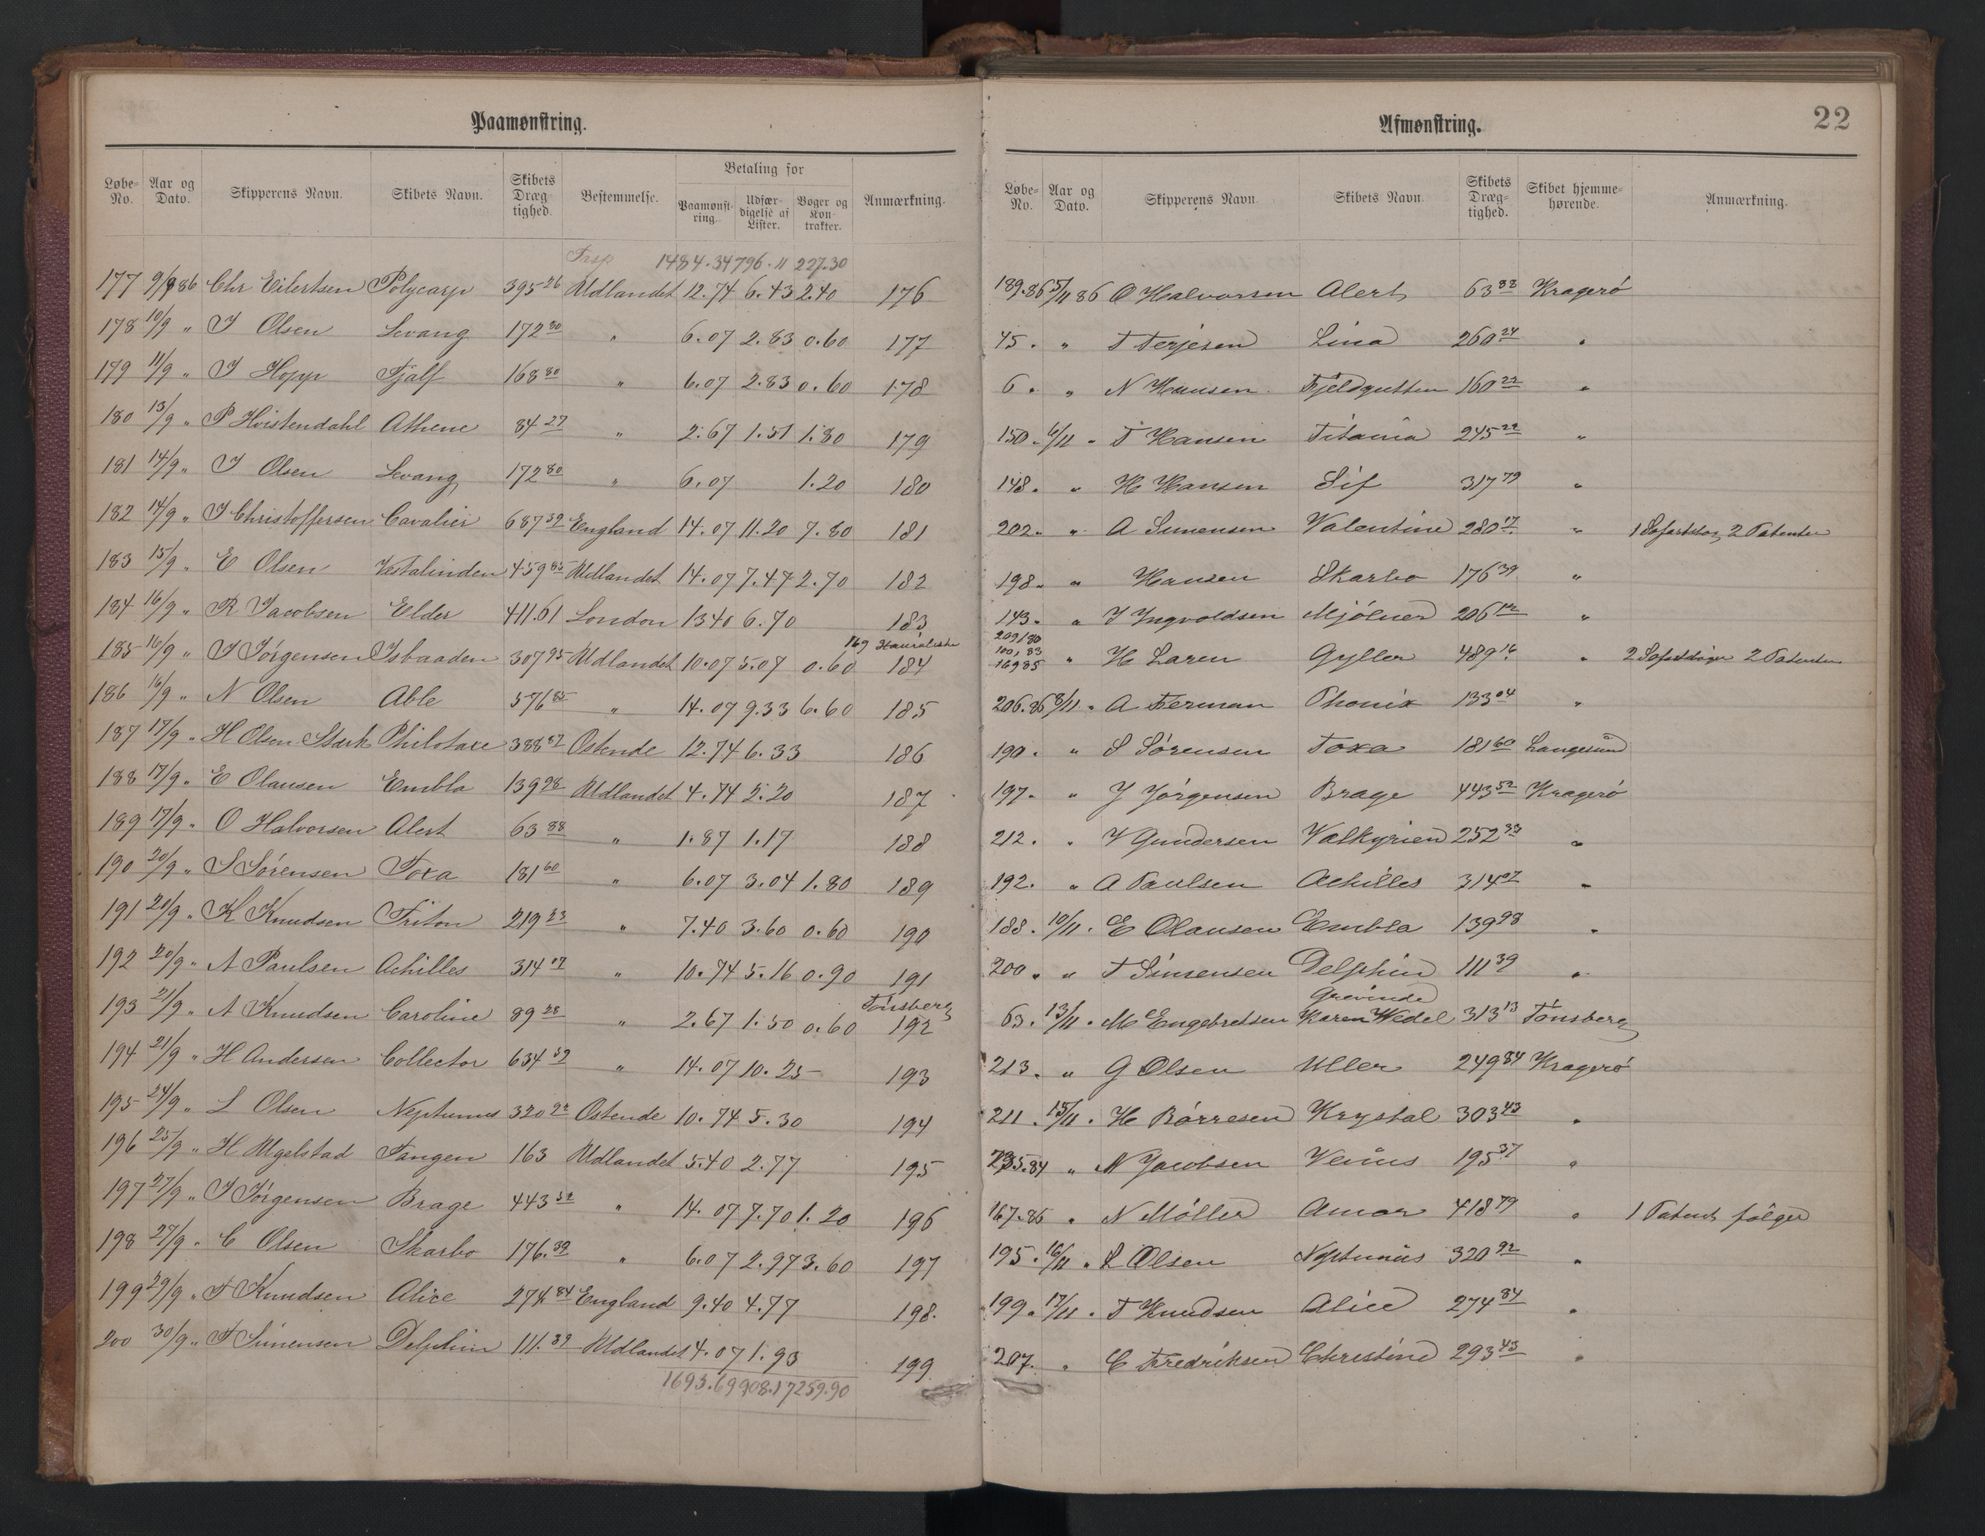 Paamønstring.
Løbe-No. Aar og Dato. Skipperens Navn. Skibets Navn. Skibets Dræg-tighed. Bestemmelse. Betaling for Paamønst-ring. Udfær-digelse af Lister. Bøger og Kon-trakter. Anmærkning.
Trsp 1484.34 796.11 227.30
177 9/9 86 Chr Eilertsen Polycarp 395 26 Udlandet 12.74 6.43 2.40 176
178 10/9 " I Olsen Levang 172 80 " 6.07 2.83 0.60 177
179 11/9 " I Hopp Fjalf 168 80 " 6.07 2.83 0.60 178
180 13/9 " P Hvistendahl Athene 84 27 " 2.67 1.51 1.80 179
181 14/9 " I Olsen Levang 172 80 " 6.07 1.20 180
182 14/9 " I Christoffersen Cavalier 687 39 England 14.07 11.20 7.80 181
183 15/9 " E Olsen Vestalinden 459 85 Udlandet 14.07 7.47 2.70 182
184 16/9 " R Jacobsen Elder 411.61 London 1340 6.70 183
185 16/9 " I Jörgensen Isbaaden 307 95 Udlandet 10.07 5.07 0.60 169 184
186 16/9 " N Olsen Able 576 85 " 14.07 9.33 6.60 185
187 17/9 " H Olsen Stærk Philotaxe 388 87 Ostende 12.74 6.33 186
188 17/9 " E Olausen Embla 139 98 Udlandet 4.74 2.20 187
189 17/9 " O Halvorsen Alert 63 88 " 1.87 1.17 188
190 20/9 " S Sörensen Foxa 181 60 " 6.07 3.04 1.80 189
191 20/9 " K Knudsen Triton 219 23 " 7.40 3.60 0.60 190
192 20/9 " A Paulsen Achilles 314 07 " 10.74 5.16 0.90 191
193 21/9 " A Knudsen Caroline 89 28 " 2.67 1.50 0.60 Tönsberg 192
194 21/9 " H Andersen Collector 634 39 " 14.07 10.25 193
195 24/9 " L Olsen Neptunus 320 92 Ostende 10.74 5.30 194
196 25/9 " H Ugelstad Tangen 163 Udlandet 5.40 2.77 195
197 27/9 " I Jörgensen Brage 443 52 " 14.07 7.70 1.20 196
198 27/9 " C Olsen Skarbo 176.39 " 6.07 2.97 3.60 197
199 29/9 " T Knudsen Alice 274 84 England 9.40 4.77 198.
200 30/9 " T Simensen Delphin 111.39 Udlandet 4.07 1.93 199
1693.69 908.17 259.90
Afmønstring.
22
Løbe-No. Aar og Dato. Skipperens Navn Skibets Navn Skibets Dræg-tighed. Skibet hjemme-hørende. Anmærkning.
189.86 5/11 86 O Halvorsen Alert 63 88 Kragerö
45. " T Terjesen Lina 260 24 "
6. " N Hansen Fjeldgutten 160 22 "
150. 6/11 " T Hansen Titania 245 22 "
148. " H Hansen Sif 317 79 "
202. " A Simensen Valentine 280 17 " 2 Patenter
198. " Hansen Skarbo 176 39 "
143. " J Ingvoldsen Mjölner 206 12 "
209/80 100, 83 169 85 " H Laren Gyller 489 16 " 2 Patenter
206.86 8/11 " A Ferman Phonix 133 04 "
190. " S Sörensen Foxa 181 60 Langesund
197. " J Jörgensen Brage 443 52 Kragerö
212. " V Gundersen Valkyrien 252 33 "
192. " A Paulsen Achilles 314 07 "
188. 10/11 " E Olausen Embla 139 98 "
200. " T Simensen Delphin 111 39 "
63. 13/11 " M Engebretsen Grevinde Karen Wedel 313 13 Tönsberg
213. " G Olsen Uller 249 84 Kragerö
211. 15/11 " H Börresen Krystal 303 43 "
84 " N Jacobsen Venus 195 37 "
167.86 " N Möller Amor 418 79 " 1 Patent fölger
195. 16/11 " L Olsen Neptunus 320 92 "
199. 17/11 " T Knudsen Alice 274 84 "
207. " C Fredriksen Christine 293 43 "